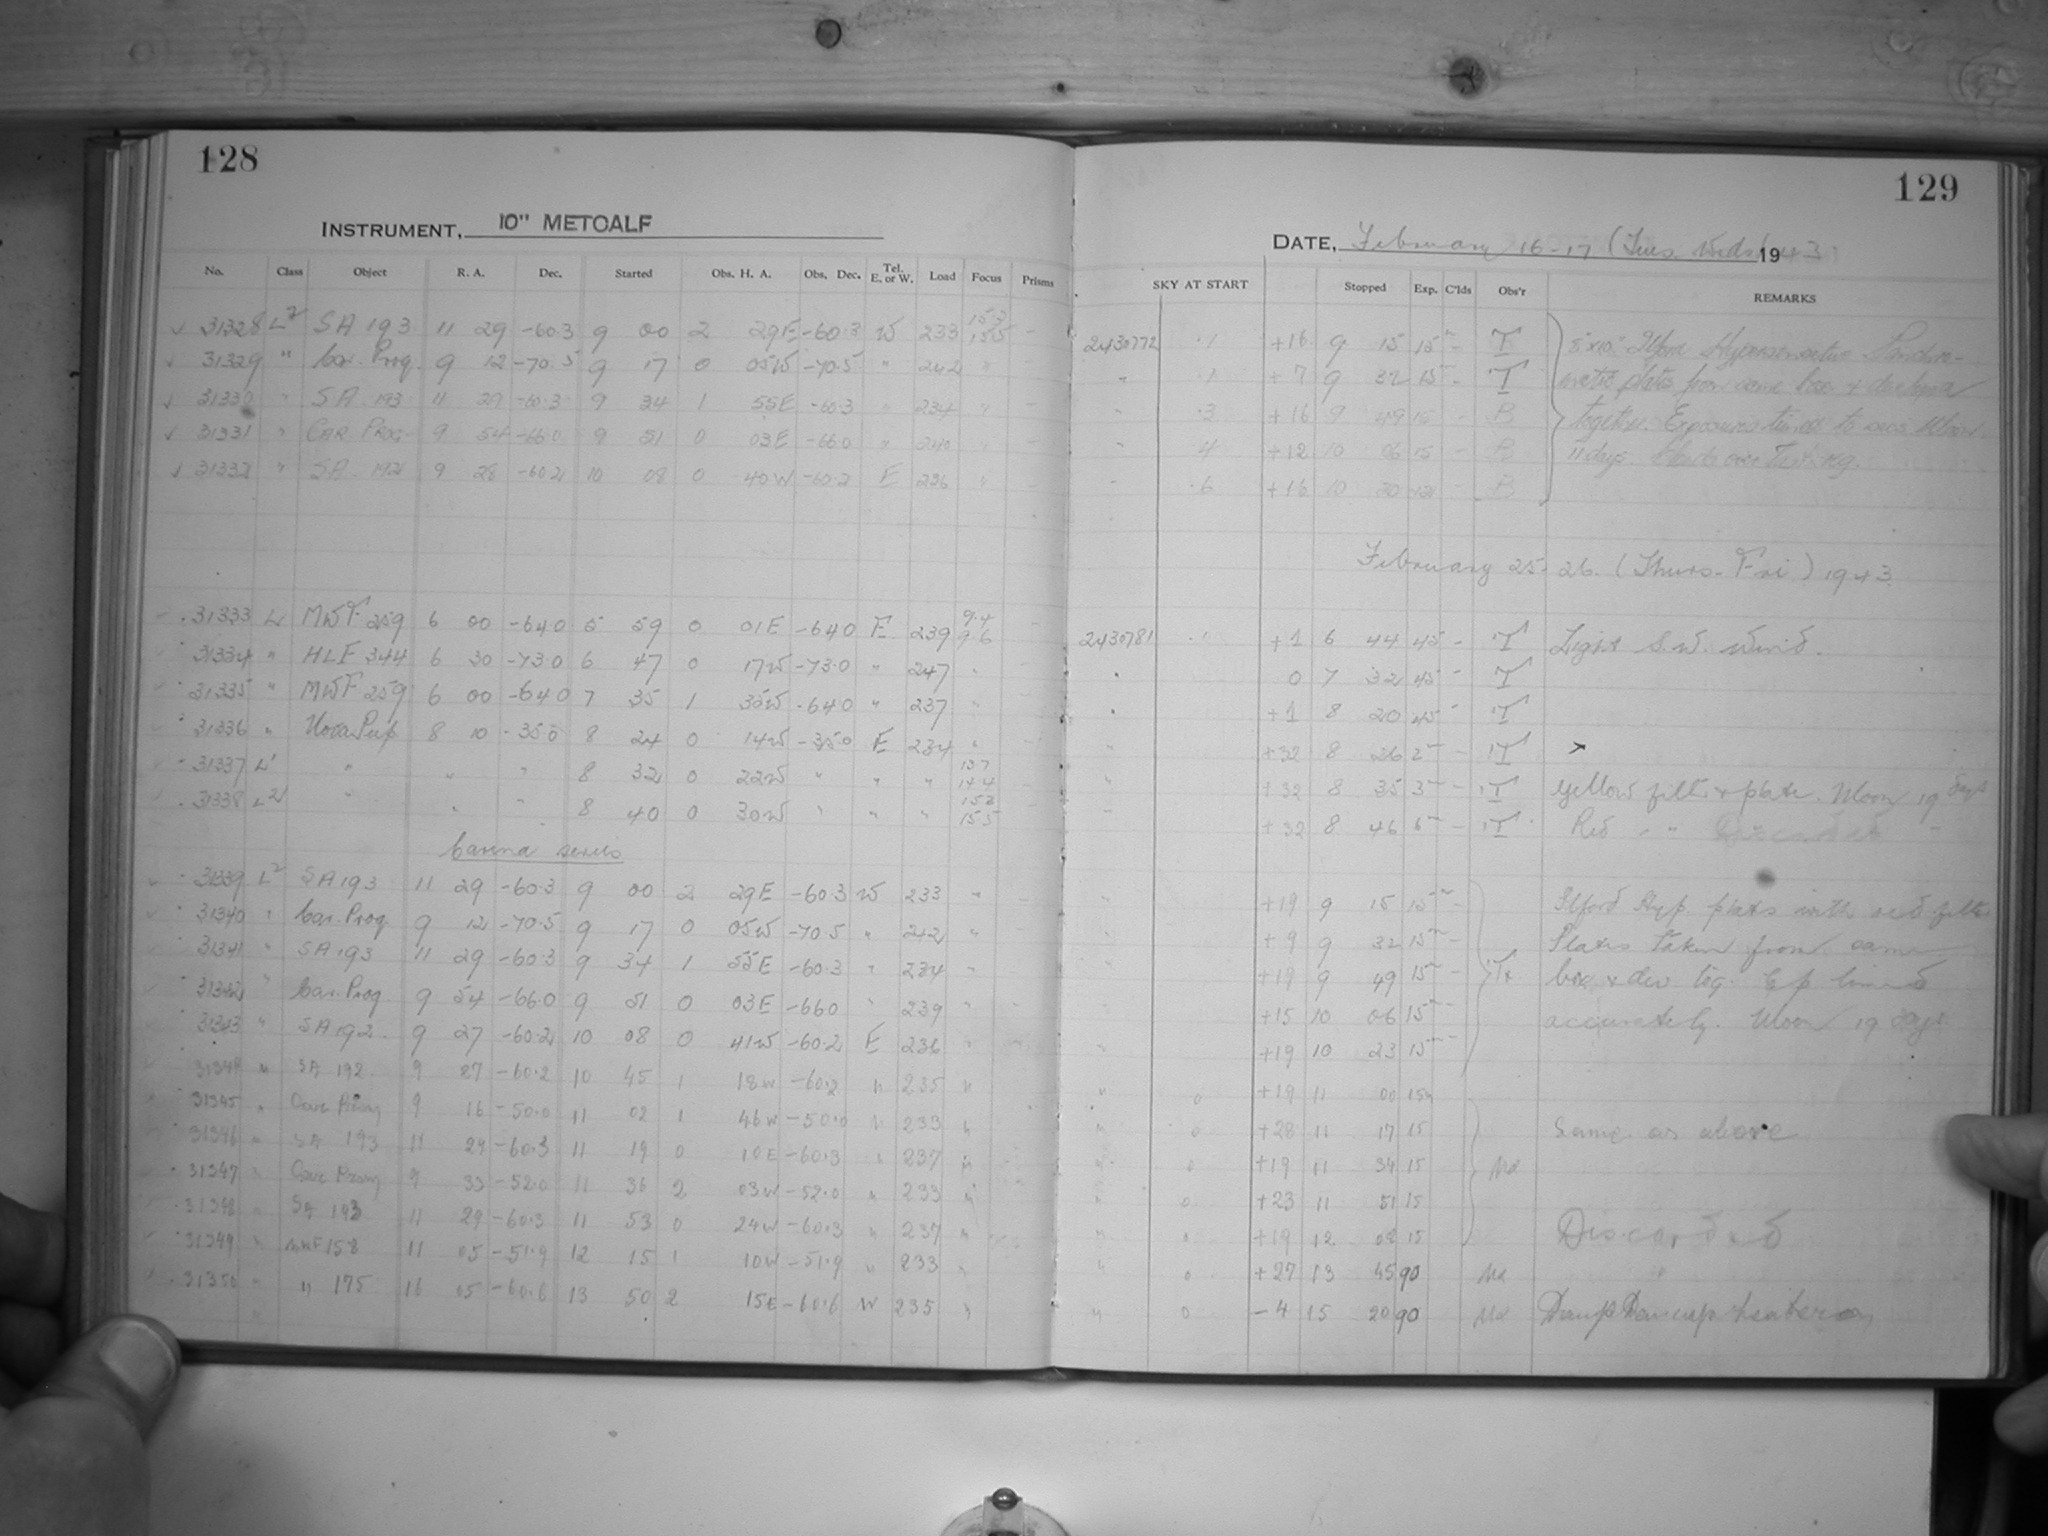 128
INSTRUMENT, 10" METCALF
No. Class Object R. A. Dec. Started Obs. H. A. Obs. Dec. Tel. E. or W. Load Focus Prisms
31328 L2 SA 193 11 29 -60.3 9 00 2 29E -60.3 W 233 15.3 15.5 -
31329 " Car. Prog. 9 12 -70.5 9 17 0 05W -70.5 " 242 "
31330 " SA 193 11 29 -60.3 9 34 1 55E -60.3 " 234 " -
31331 " CAR PROG. 9 54 -66.0 9 51 0 03E -66.0 " 240 " -
31332 " SA. 192 9 28 -60.2 10 08 0 40W -60.2 E 236 " -
31333 L MWF 259 6 00 -64.0 5 59 0 01E -64.0 E 239 9.4 9.6 -
31334 " HLF 344 6 30 -73.0 6 47 0 17W -73.0 " 247 " -
31335 " MWF 259 6 00 -64.0 7 35 1 35W -64.0 " 237 " -
31336 " Nova Pup 8 10 -35.0 8 24 0 14W -35.0 E 234 " -
31337 L' " " " 8 32 0 22W " " " 13.7 14.4 -
31338 L2 " " " 8 40 0 30W " " " 15.3 15.5 -
Carina series
31339 L2 SA 193 11 29 -60.3 9 00 2 29E -60.3 W 233 " -
31340 " Car. Prog. 9 12 -70.5 9 17 0 05W -70.5 " 242 " -
31341 " SA 193 11 29 -60.3 9 34 1 55E -60.3 " 234 " -
31342 " Car. Prog. 9 54 -66.0 9 51 0 03E -66.0 " 239 " -
31343 " SA 192. 9 27 -60.2 10 08 0 41W -60.2 E 236 " -
31344 " SA 192 9 27 -60.2 10 45 1 18W -60.2 " 235 "
31345 " 9 16 -50.0 11 02 1 46W -50.0 " 233 "
31346 " SA 193 11 29 -60.3 11 19 0 10E -60.3 " 237 "
31347 " 9 33 -52.0 11 36 2 03W -52.0 " 233 "
31348 " SA 193 11 29 -60.3 11 53 0 24W -60.3 " 237 "
31349 " MWF 158 11 05 -51.9 12 15 1 10W -51.9 " 233 "
31350 " " 175 16 05 -60.6 13 50 2 15E -60.6 W 235 "
129
DATE, February 16-17 (Tues. Weds) 1943
SKY AT START Stopped Exp. C'lds Obs'r REMARKS
2430772 .1 +16 9 15 15m - T 5x10" Ilford Hypersensitive
" .1 +7 9 32 15 - T plates from same box & developed
" .3 +16 9 49 15 - B together. Exposures timed to secs. Moon
" .4 +12 10 06 15 - B 11 days.
" .6 +16 10 20 12 - B
February 25-26. (Thurs-Fri) 1943
2430781 " +1 6 44 45 - T Light S.W. Wind.
" 0 7 32 45 - T
" +1 8 20 45 - T
" +32 8 26 2m - T
" +32 8 35 3m - T Yellow filt. & plate. Moon 19 days
" +32 8 46 6m - T Red " "
" +19 9 15 15m - Ilford Hyp. plates with red filter
" +9 9 32 15m - Plates taken from same
" +19 9 49 15m - Tx box & dev. tog. Exp timed
" +15 10 06 15m accurately. Moon 19 days
" +19 10 23 15m
" 0 +19 11 00 15m
" 0 +28 11 17 15 Same as above
" 0 +19 11 34 15 Mx
" 0 +23 11 51 15
" 0 +19 12 08 15 Discarded
" 0 +27 13 45 90 Mx
" 0 -4 15 20 90 Mx Damp Dewcap heater on